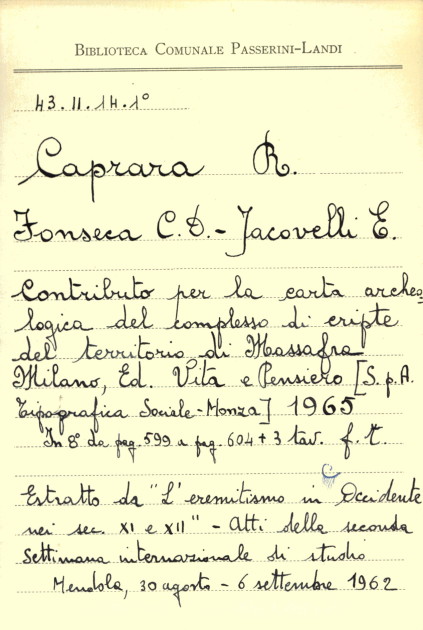 BIBLIOTECA COMUNALE PASSERINI-LANDI
43.II.14.1°
Caprara R.
Fonseca C.D.-Jacovelli E.
Contributo per la carta archeo
logica del complesso di cripte
del territorio di Massafra
Milano, Ed. Vita e Pensiero [S.p.A.
Tipografica Sociale-Monza] 1965
In 8° da pag. 599 a pag. 604 + 3 tav. f.t.
Estratto da "L'eremitismo in Occidente
nei sec. XI e XII" - Atti della seconda
Settimana internazionale di studio
Mendola, 30 agosto - 6 settembre 1962